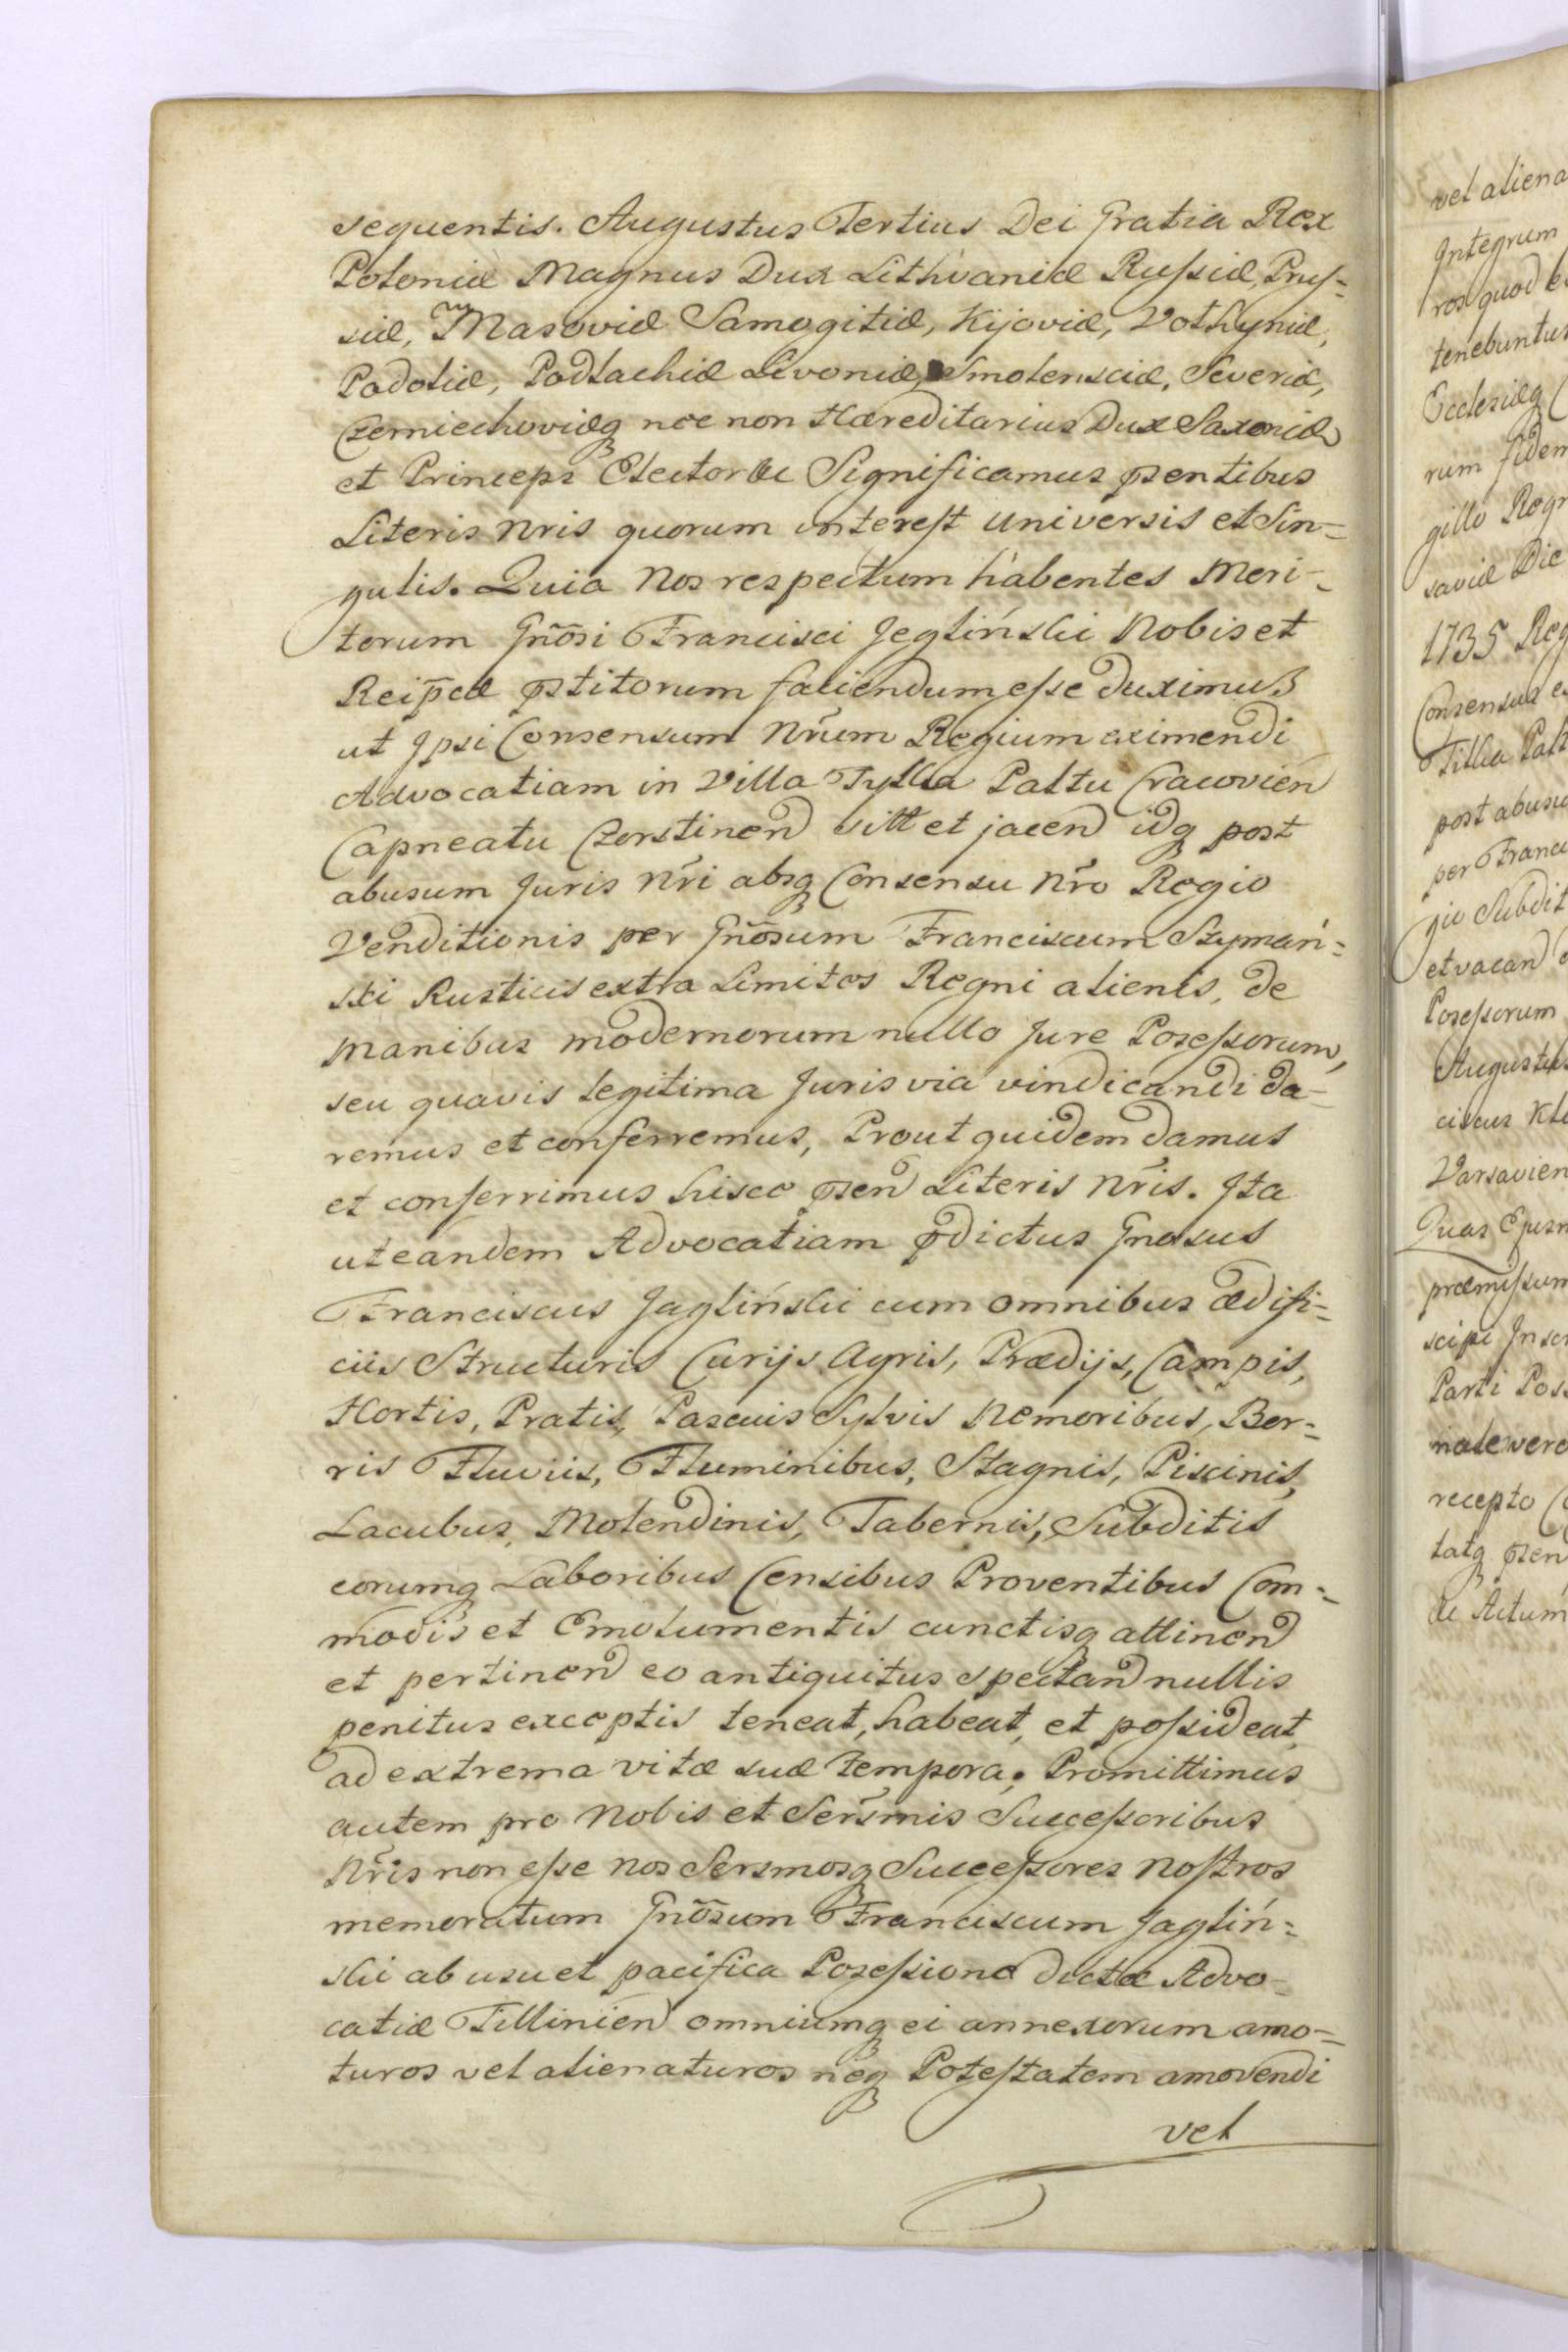 sequentis. Augustus Tertius Dei Gratia Rex
Poloniæ Magnus Dux Lithvaniæ Russiæ, Prus=
siæ, Masoviæ Samogitiæ, Kijoviæ, Volhyniæ,
Podoliæ, Podlachiæ Livoniæ, Smolensciæ, Severiæ,
Czerniechoviæq nec non Hæreditarius Dux Saxoniæ
et Princeps Elector &c Significamus pſentibus
Literis Nr̃is quorum interest universis et Sin=
gulis. Quia Nos respectum habentes Meri=
torum Gnõsi Francisci Jegliński Nobis et
Reip̃cæ pſtitorum faciendum esse duximus
ut Ipsi Consensum Nr̃um Regium eximendi
Advocatiam in Villa Tylka Paltu Cracovien
Capneatu Czorstinen sitt et jacen idq post
abusum Juris Nr̃i absq Consensu Nr̃o Regio
Venditionis per Gnõsum Franciscum Szymań=
ski Rusticis extra Limites Regni alienis, de
manibus modernorum nullo Jure Posessorum,
seu quavis legitima Juris via vindicandi da=
remus et conferremus, Prout quidem damus
et conferrimus hisce pſen Literis Nr̃is. Ita
ut eandem Advocatiam pdictus Gnosus
Franciscus Jagliński cum omnibus ædifi=
ciis Structuris Curijs Agris, Prædijs, Campis,
Hortis, Pratis, Pascuis Sylvis Nemoribus, Bor=
ris Fluviis, Fluminibus, Stagnis, Piscinis,
Lacubus, Molendinis, Tabernis, Subditis
eorumq Laboribus Censibus Proventibus Com=
modis et Emolumentis cunctisq attinen
et pertinen eo antiquitus spectan nullis
penitus exceptis teneat, habeat, et possideat,
ad extrema vitæ suæ tempora; Promittimus
autem pro Nobis et Ser̃smis Successoribus
Nr̃is non esse nos Sersmosq Successores Nostros
memoratum Gnõsum Franciscum Jagliń=
ski ab usu et pacifica Posessione dictæ Advo=
catiæ Tillinien omniumq ei annexorum amo=
turos vel alienaturos neq Potestatem amovendi
vel
vel aliena
Integrum
ros quod
tenebuntur
Ecclesiæq
rum fidem
gillo Regn
saviæ Die
1735 Reg
Consensus
Tilka Palt
post abusu
per Franci
gio Subdit
et vacan
Posessorum
Augustus
ciscus
Varsavien
Quas
præmissum
scipi
Parti Pos
nale vero
recepto
tatq pſen
Actum